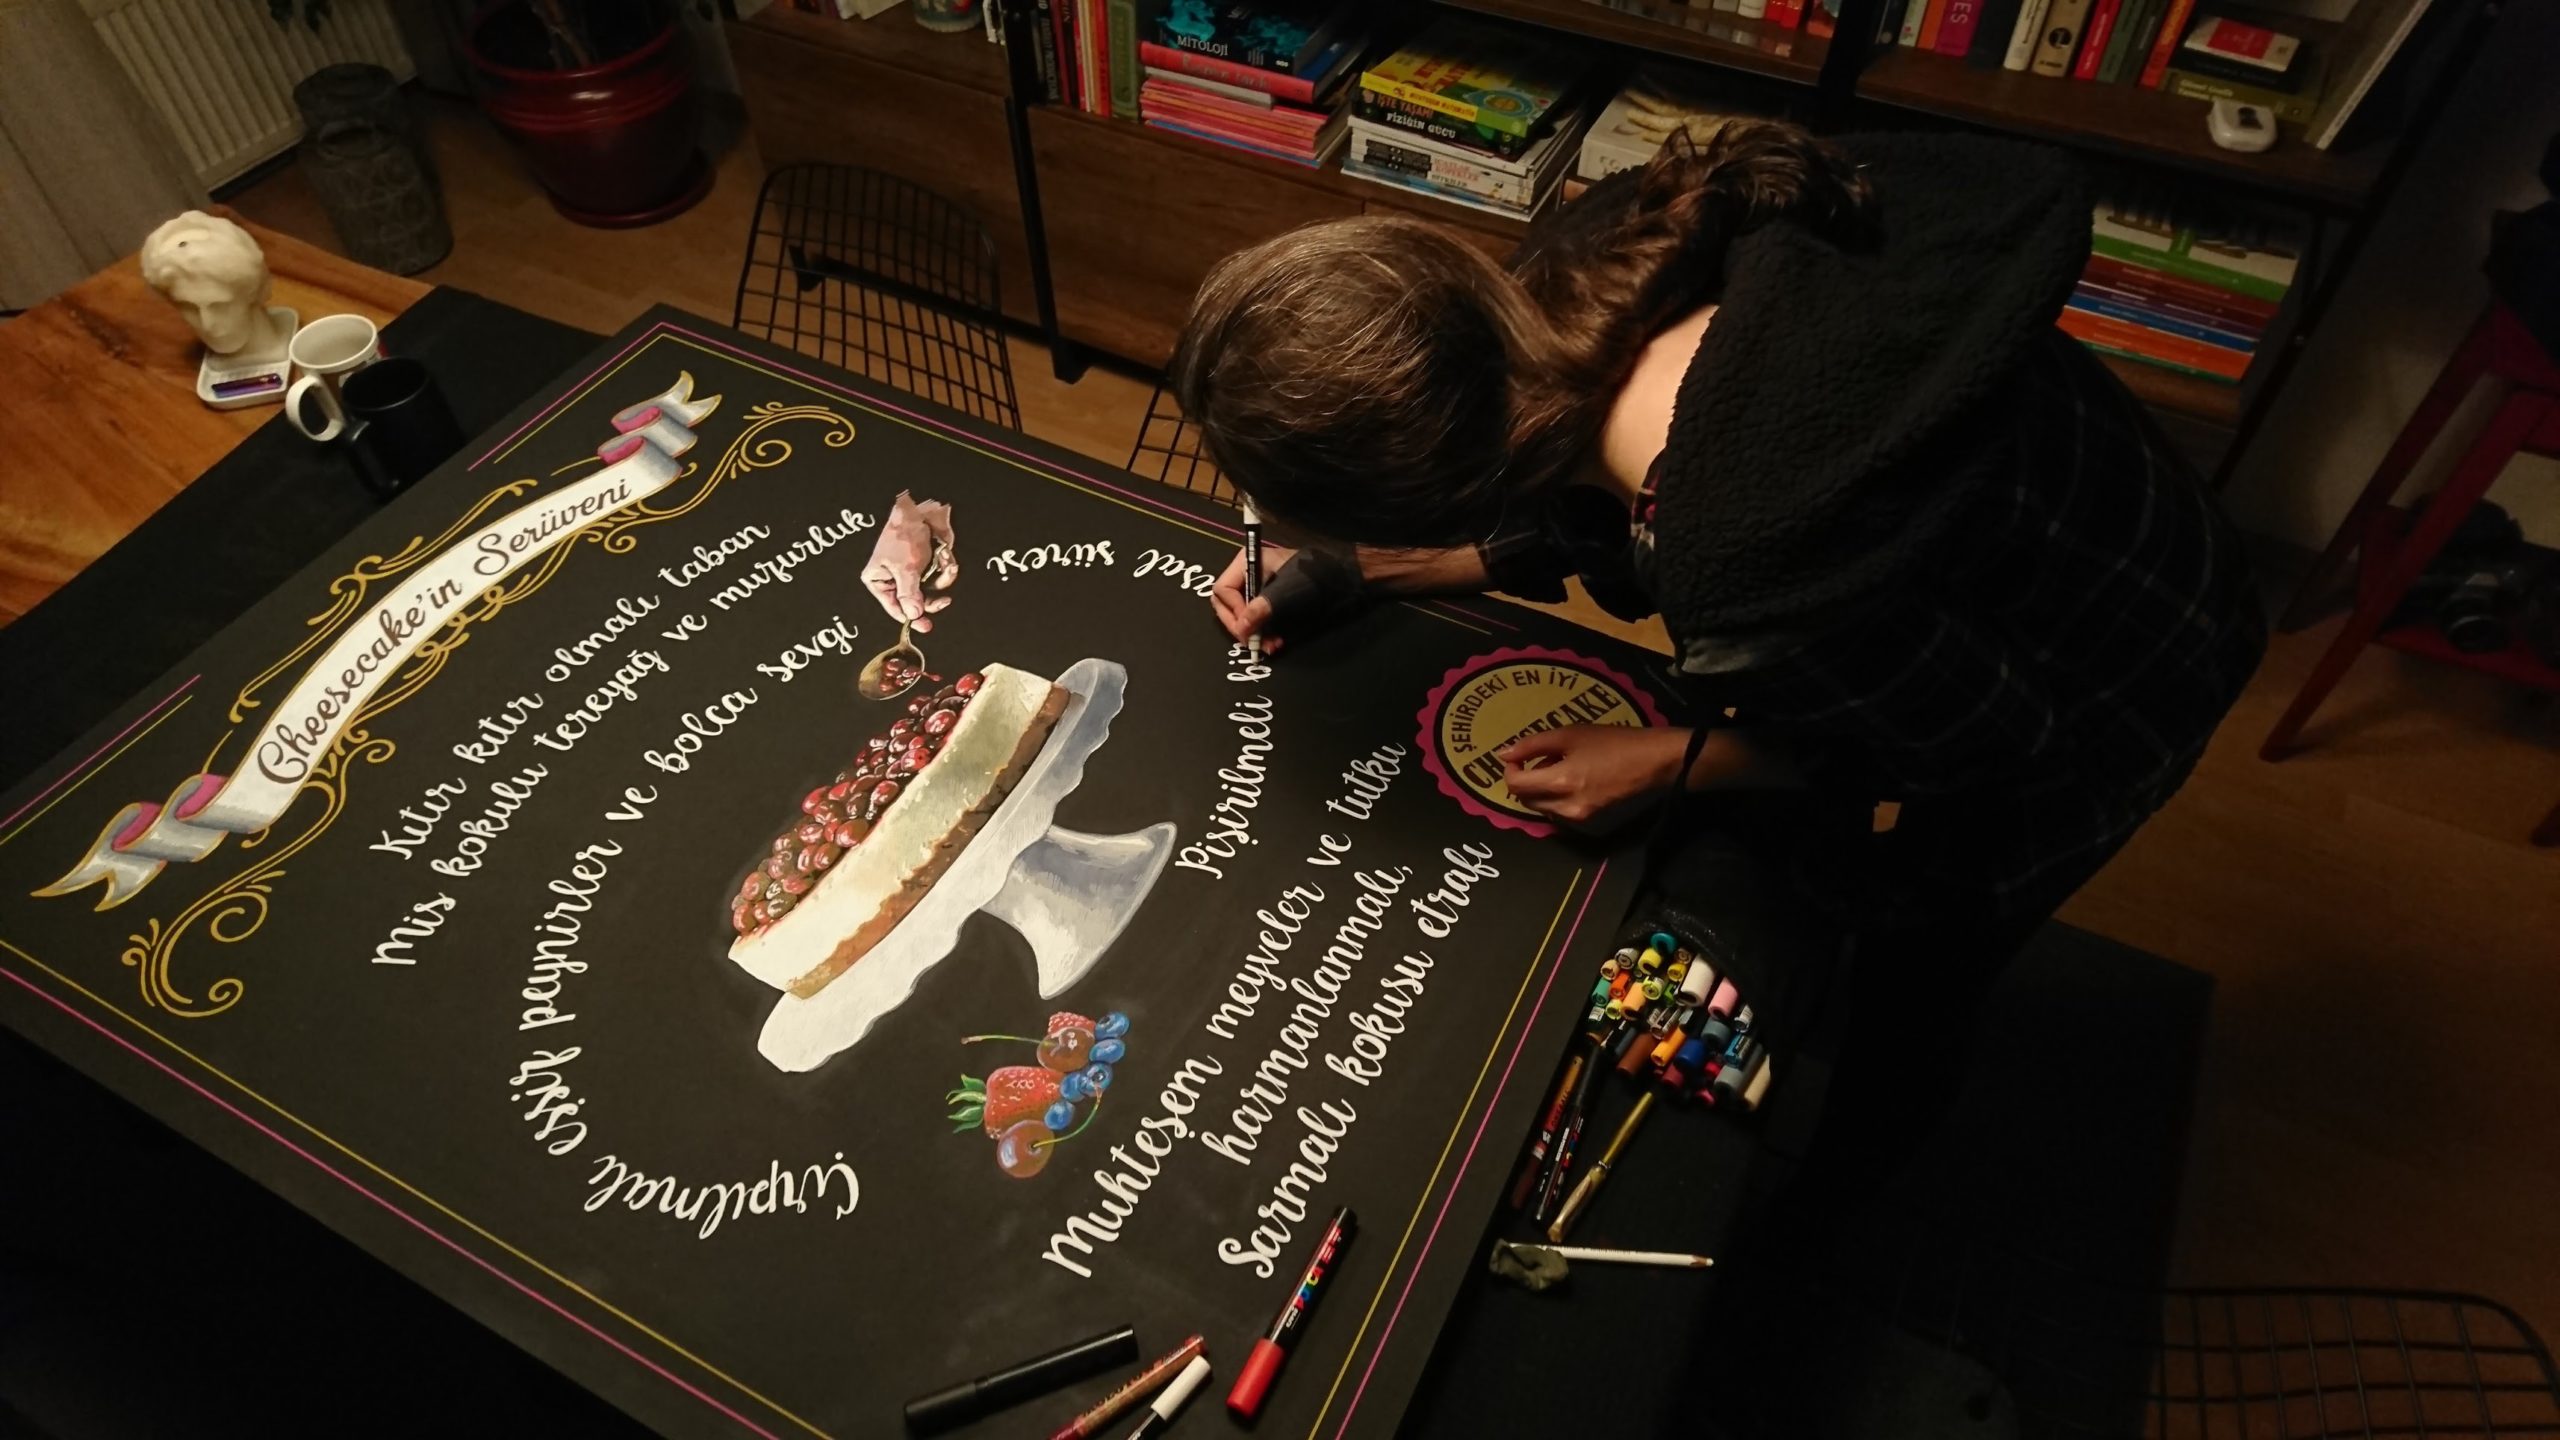 Cheesecake'in Serüveni
Kıtır kıtır olmalı taban
Mis kokulu tereyağ ve muzurluk
Çırpılmalı eşsiz peynirler ve bolca sevgi
Pişirilmeli bir
süresi
Muhteşem meyveler ve tutku
harmanlanmalı,
Sarmalı kokusu etrafı
ŞEHİRDEKİ EN İYİ
CHEESECAKE
MİTOLOJİ
İŞTE YAŞAM!
FİZİĞİN GÜCÜ
POSCA